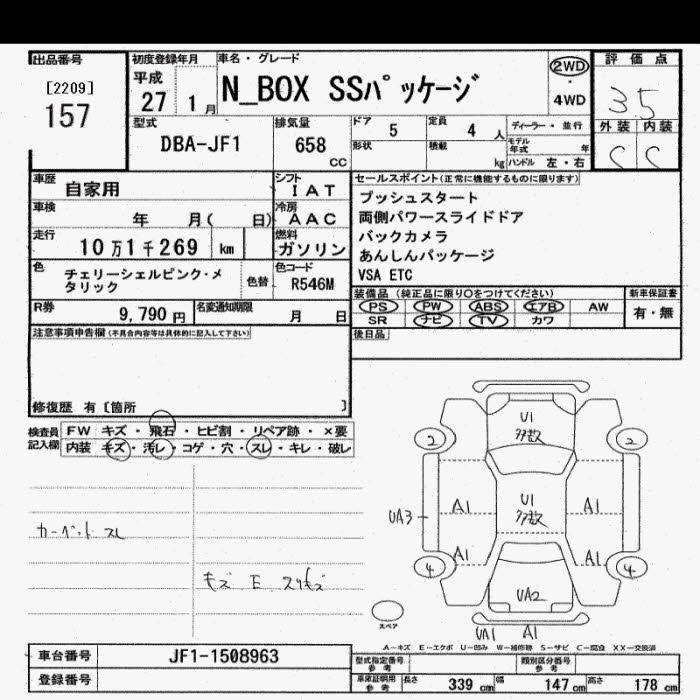 出品番号
[2209]
157
初度登録年月
平成
27 1月
車名・グレード
N_BOX SSパッケージ
2WD
・
4WD
評価点
3.5
外装 内装
C C
型式
DBA-JF1
排気量
658
cc
ドア 5
定員 4人
ディーラー・並行
形状
積載 kg
モデル年式 年
ハンドル 左・右
車歴 自家用
シフト IAT
車検 年 月( 日)
冷房 AAC
走行 10万1千269 km
燃料 ガソリン
色 チェリーシェルピンク・メ
タリック
色替
色コード R546M
R券 9,790円
名変通知期限 月 日
セールスポイント(正常に機能するものに限ります)
プッシュスタート
両側パワースライドドア
バックカメラ
あんしんパッケージ
VSA ETC
装備品 (純正品に限り○をつけてください)
新車保証書
PS PW ABS エアB AW
有・無
SR ナビ TV カワ
後日品
注意事項申告欄(不具合内容等は具体的に記入して下さい)
修復歴 有〔箇所 〕
検査員
記入欄
FW キズ・飛石・ヒビ割・リペア跡・×要
内装 キズ・汚レ・コゲ・穴・スレ・キレ・破レ
カーペット スレ
キズ E スリキズ
U1
多数
2 2
U1
多数
A1 A1
UA3
A1 A1
4 4
UA2
UA1 A1
スペア
A-キズ E-エクボ U-凹み W-補修跡 S-サビ C-腐食 XX-交換済
車台番号 JF1-1508963
登録番号
型式指定番号
参考
類別区分番号
参考
車庫証明用
参考
長さ 339 cm 幅 147 cm 高さ 178 cm